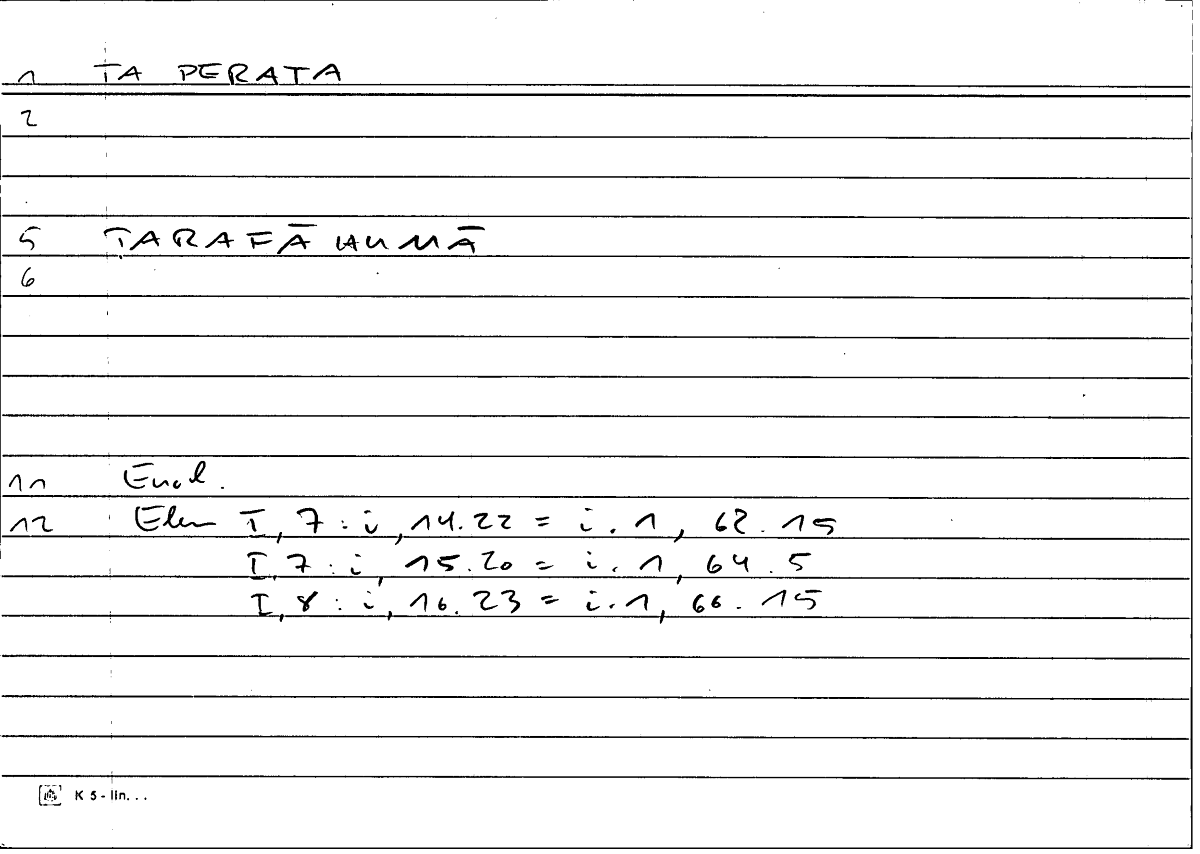 1 TA PERATA
2
5 TARAFĀHUMĀ
6
11 Eucl.
12 Elem I, 7 : i, 14.22 = i.1, 62.15
I, 7 : i, 15.20 = i.1, 64.5
I, 8 : i, 16.23 = i.1, 66.15
K 5 - lin...